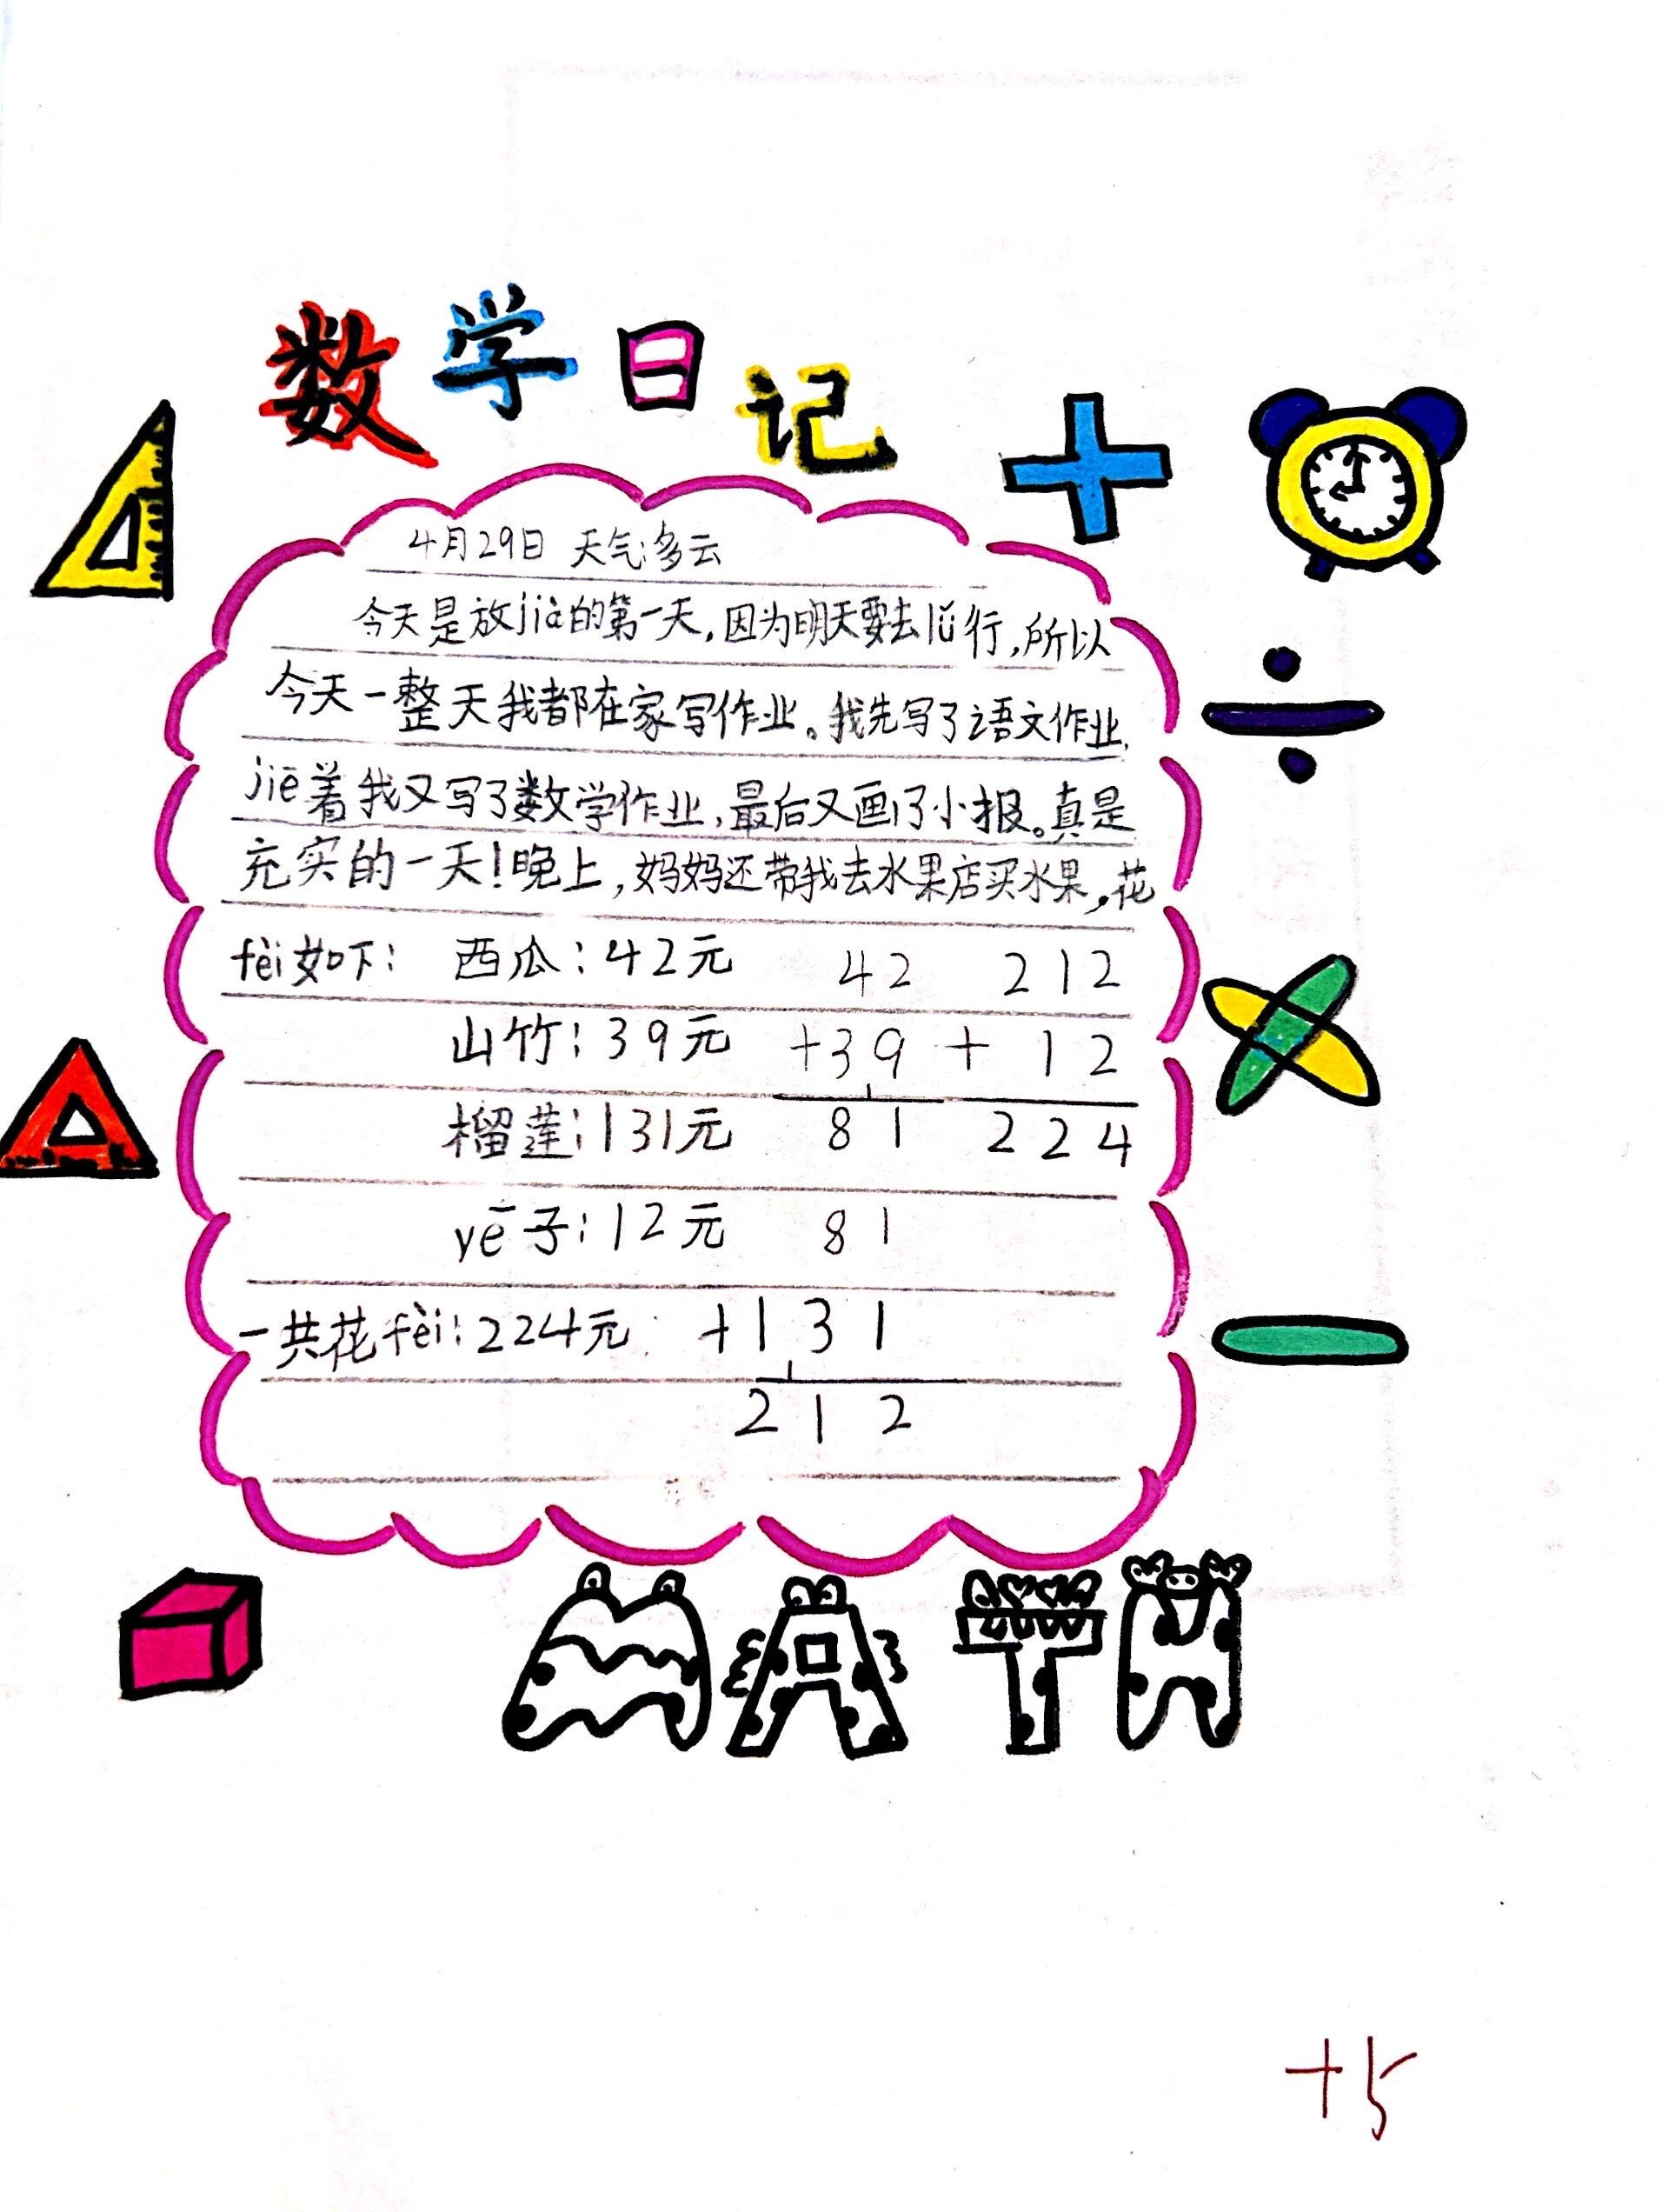 数学日记
4月29日 天气:多云
今天是放jià的第一天,因为明天要去lǚ行,所以
今天一整天我都在家写作业。我先写了语文作业,
jiē着我又写了数学作业,最后又画了小报。真是
充实的一天!晚上,妈妈还带我去水果店买水果,花
fèi如下: 西瓜:42元 42 212
山竹:39元 +39 + 12
榴莲:131元 81 224
yē子:12元 81
一共花fèi:224元. +131
212
MATH
+5